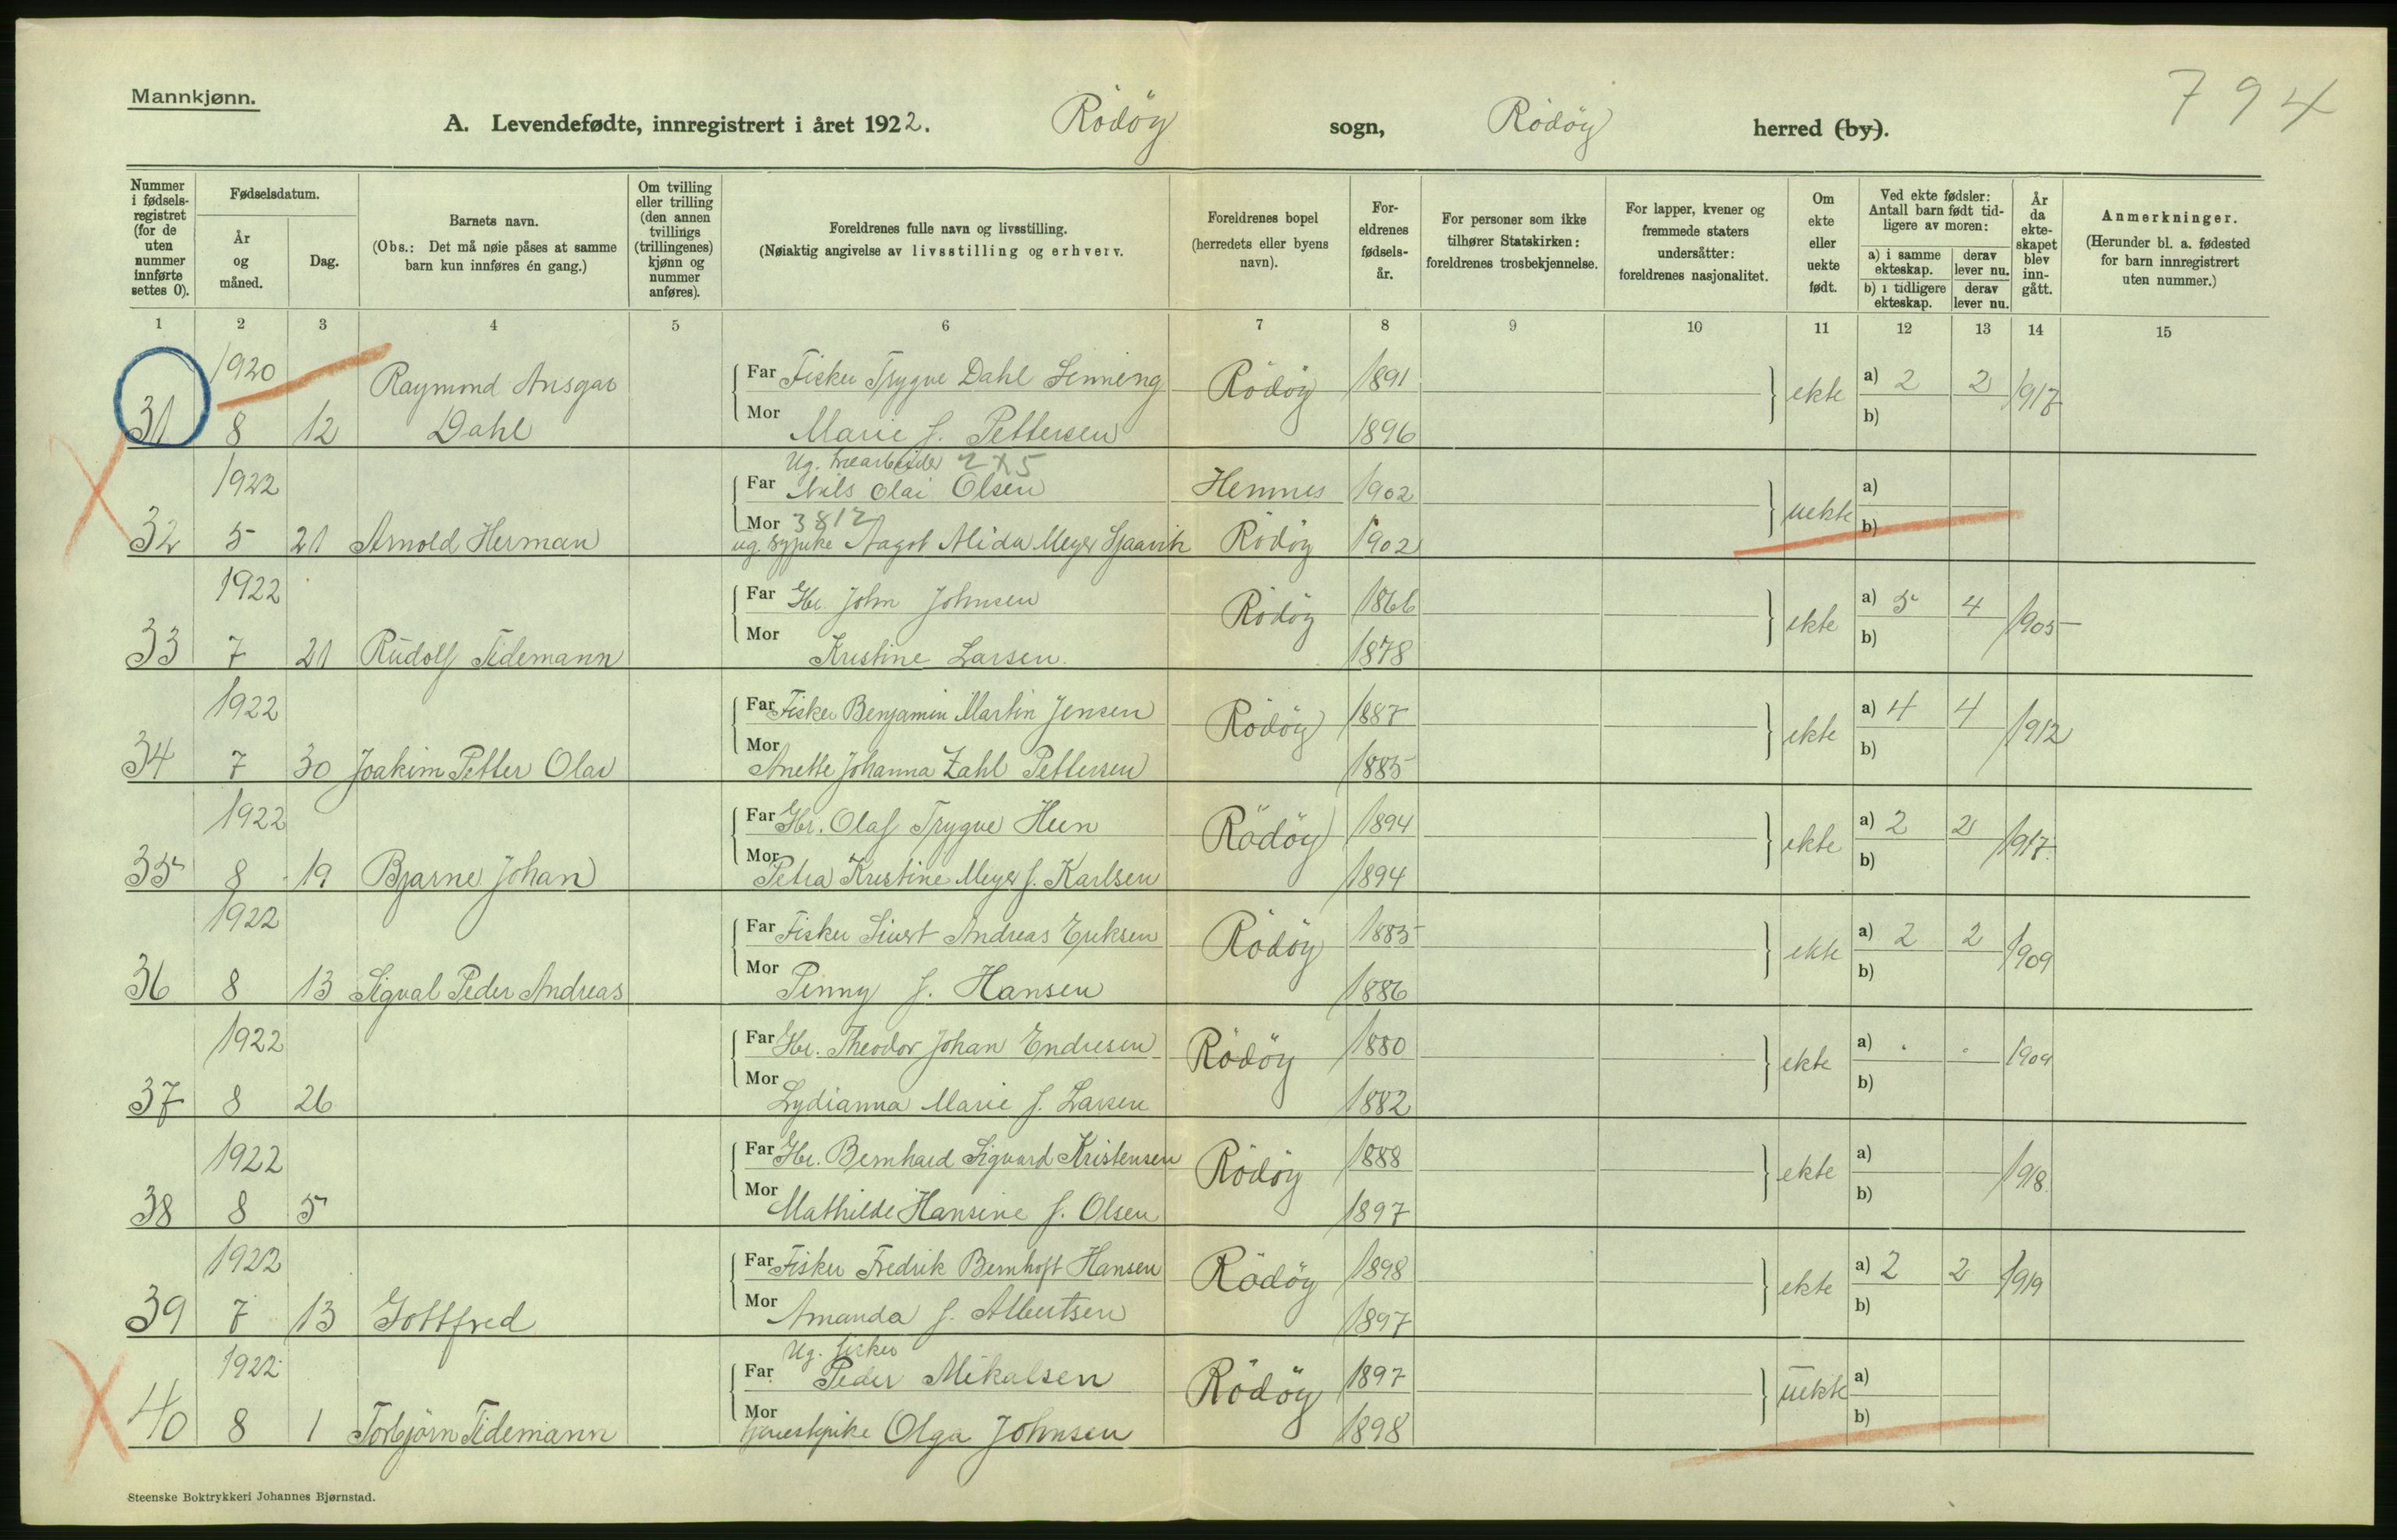 794
Mannkjønn.
A. Levendefødte, innregistrert i året 1922. Rödöy sogn, Rödöy herred (by).
Nummer i fødselsregistret (for de uten nummer innførte settes 0).
Fødselsdatum.
År og måned.
Dag.
Barnets navn.
(Obs.: Det må nøie påses at samme barn kun innføres én gang.)
Om tvilling eller trilling (den annen tvillings (trillingenes) kjønn og nummer anføres).
Foreldrenes fulle navn og livsstilling.
(Nøiaktig angivelse av livsstilling og erhverv.
Foreldrenes bopel (herredets eller byens navn).
Foreldrenes fødselsår.
For personer som ikke tilhører Statskirken: foreldrenes trosbekjennelse.
For lapper, kvener og fremmede staters undersåtter: foreldrenes nasjonalitet.
Om ekte eller uekte født.
Ved ekte fødsler: Antall barn født tidligere av moren:
a) i samme ekteskap.
derav lever nu.
b) i tidligere ekteskap.
derav lever nu.
År da ekteskapet blev inngått.
Anmerkninger.
(Herunder bl. a. fødested for barn innregistrert uten nummer.)
1 2 3 4 5 6 7 8 9 10 11 12 13 14 15
1920 Raymond Ansgar Far Fisker Trygve Dahl Rödöy 1891 ekte a) 2 2 1917
31 8 12 Dahl Mor Marie f. Pettersen 1896 b)
Ug. 2x5
1922 Far Nils Olai Olsen Hemnes 1902 uekte a)
Mor 3812
32 5 21 Arnold Herman ug. Aagot Alida Meyer Rödöy 1902 b)
1922 Far Gbr. John Johnsen Rödöy 1866 ekte a) 5 4 1905
33 7 21 Rudolf Tidemann Mor Kristine Larsen 1878 b)
1922 Far Fisker Benjamin Martin Jensen Rödöy 1887 ekte a) 4 4 1912
34 7 30 Joakim Petter Olav Mor Anette Johanna Zahl Pettersen 1885 b)
1922 Far Gbr. Olaf Trygve Heen Rödöy 1894 ekte a) 2 2 1917
35 8 19 Bjarne Johan Mor Petra Kristine Meyer f. Karlsen 1894 b)
1922 Far Fisker Sivert Andreas Eriksen Rödöy 1885 ekte a) 2 2 1909
36 8 13 Sigval Peder Andreas Mor Penny f. Hansen 1886 b)
1922 Far Gbr. Theodor Johan Endresen Rödöy 1880 ekte a) 1909
37 8 26 Mor Lydianna Marie f. Larsen 1882 b)
1922 Far Gbr. Bernhard Sigvard Kristensen Rödöy 1888 ekte a) 1918
38 8 5 Mor Mathilde Hansine f. Olsen 1897 b)
1922 Far Fisker Fredrik Bernhoft Hansen Rödöy 1898 ekte a) 2 2 1919
39 7 13 Gottfred Mor Amanda f. Albertsen 1897 b)
Ug. fisker
1922 Far Peder Mikalsen Rödöy 1897 uekte a)
40 8 1 Torbjörn Tidemann Mor Olga Johnsen 1898 b)
Steenske Boktrykkeri Johannes Bjørnstad.